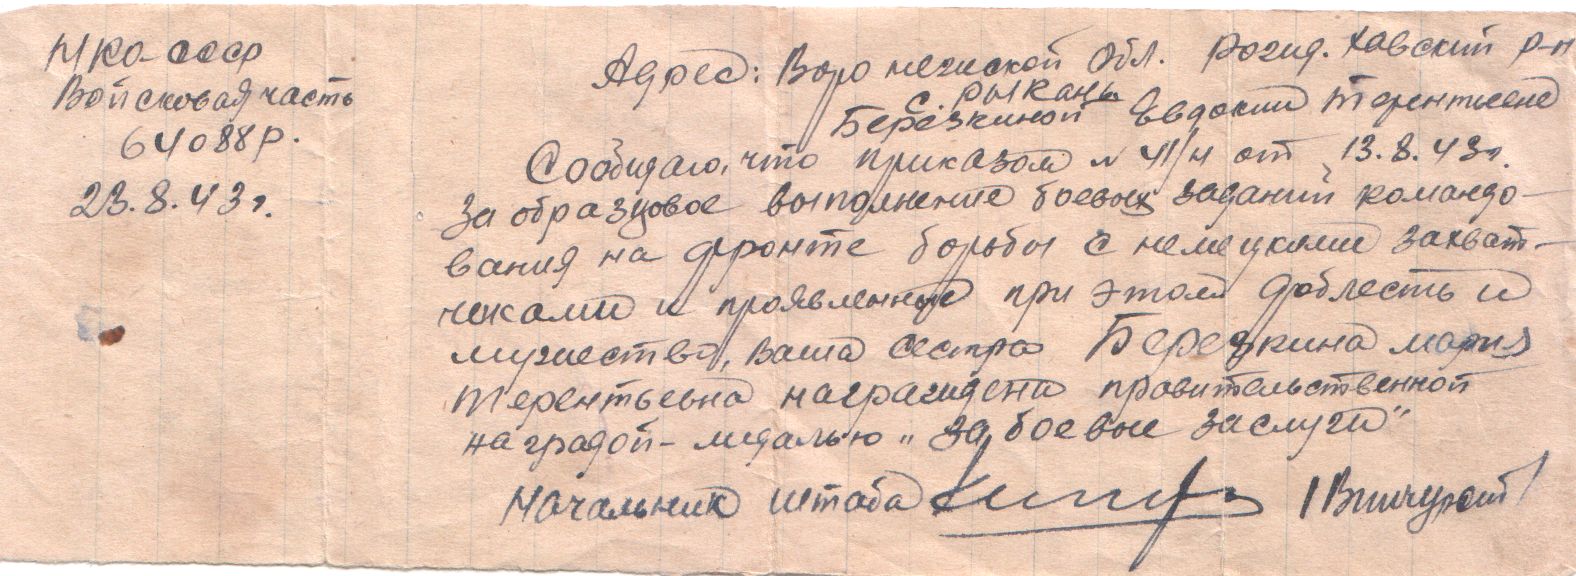 НКО-СССР
Войсковая часть
64088р.
23.8.43г.
Адрес: Воронежской Обл. Рожд. Хавский р-н
с. Рыкань
Березкиной Евдокии Терентиевне
Сообщаю, что приказом № 41/н от 13.8.43г.
За образцовое выполнение боевых заданий командо-
вания на фронте борьбы с немецкими захват-
чиками и проявленные при этом доблесть и
мужество, Ваша сестра Березкина Мария
Терентьевна награждена правительственной
наградой - медалью „За боевые заслуги"
Начальник штаба